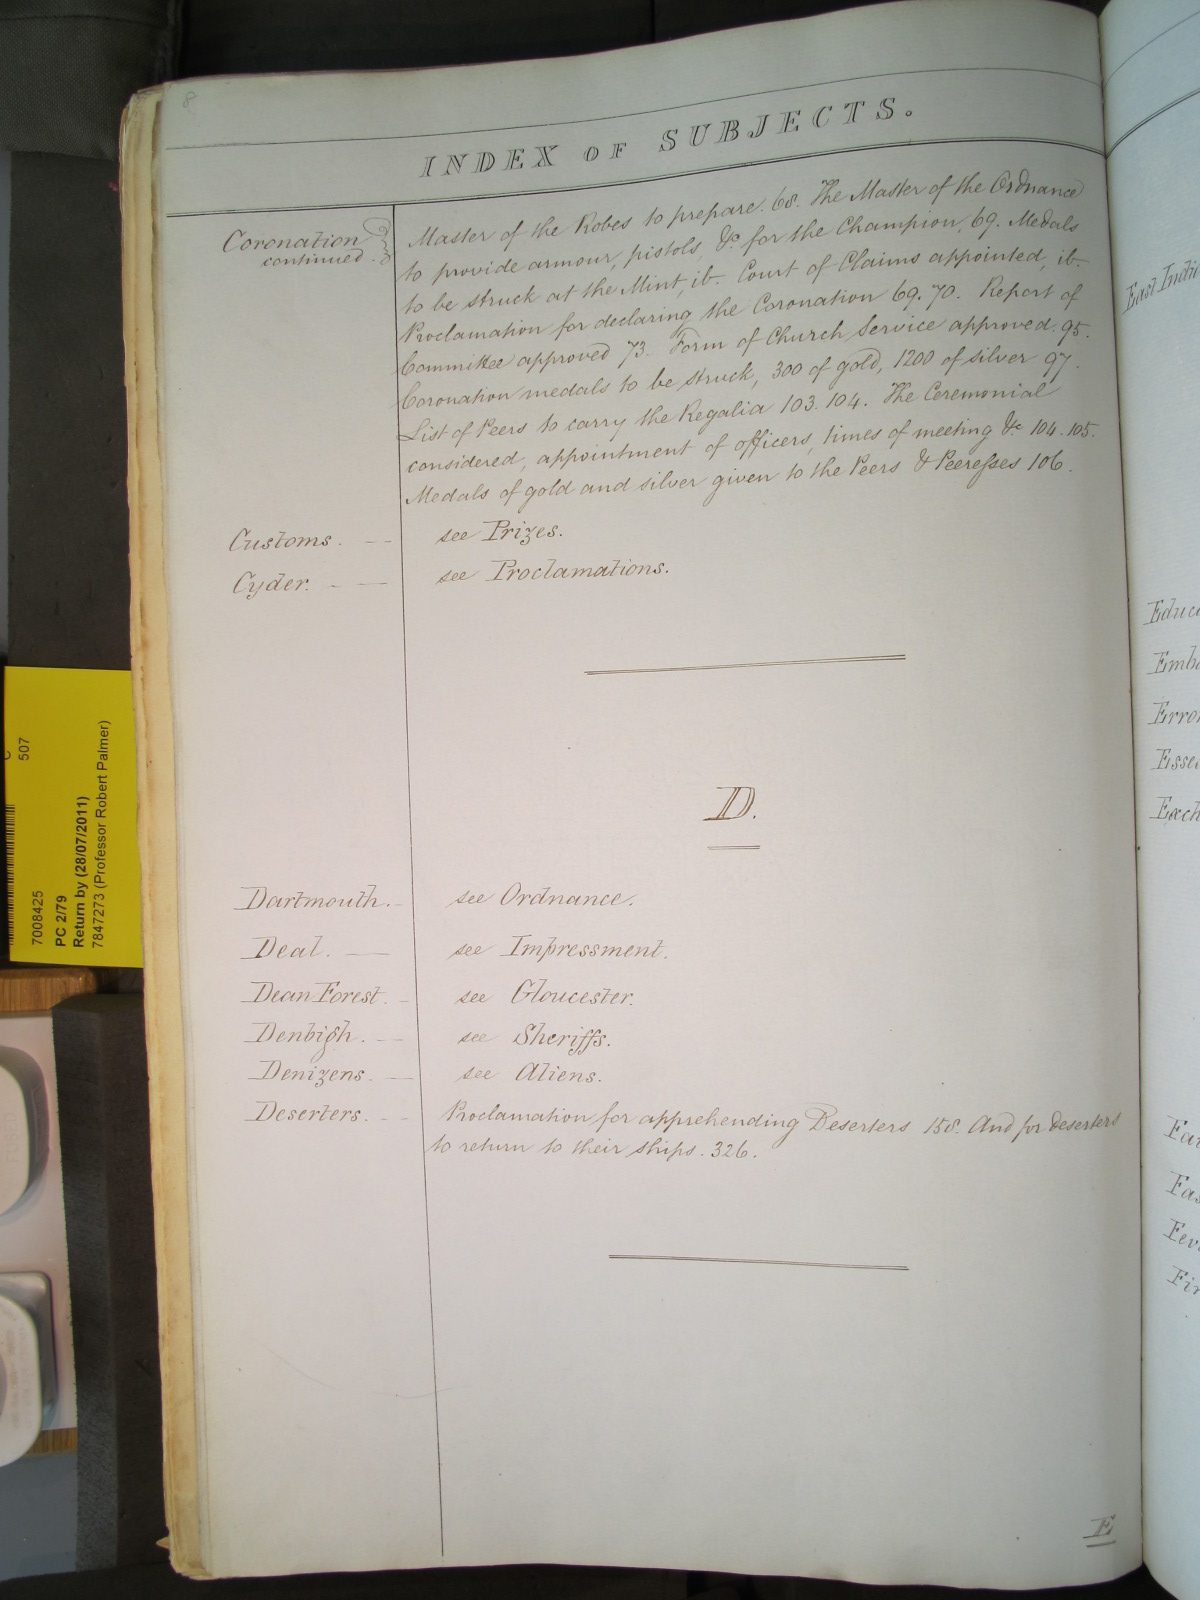 8
INDEX OF SUBJECTS.
Coronation
continued.
Master of the Robes to prepare. 68. The Master of the Ordnance
to provide armour, pistols, &c for the Champion, 69. Medals
to be struck at the Mint, ib. Court of Claims appointed, ib.
Proclamation for declaring the Coronation 69. 70. Report of
Committee approved 73. Form of Church Service approved. 95.
Coronation medals to be struck, 300 of gold, 1200 of silver 97.
List of Peers to carry the Regalia 103. 104. The Ceremonial
considered, appointment of officers, times of meeting &c 104. 105.
Medals of gold and silver given to the Peers & Peeresses 106.
Customs. — see Prizes.
Cyder. - — see Proclamations.
D.
Dartmouth. - see Ordnance.
Deal. — see Impressment.
Dean Forest. - see Gloucester.
Denbigh. — see Sheriffs.
Denizens. — see Aliens.
Deserters. - - Proclamation for apprehending Deserters 158. And for deserters
to return to their ships. 326.
E
507
7008425
PC 2/79
Return by (28/07/2011)
7847273 (Professor Robert Palmer)
East Indi
Educ
Emb
Erro
Esse
Exch
Fa
Fas
Fev
Fir